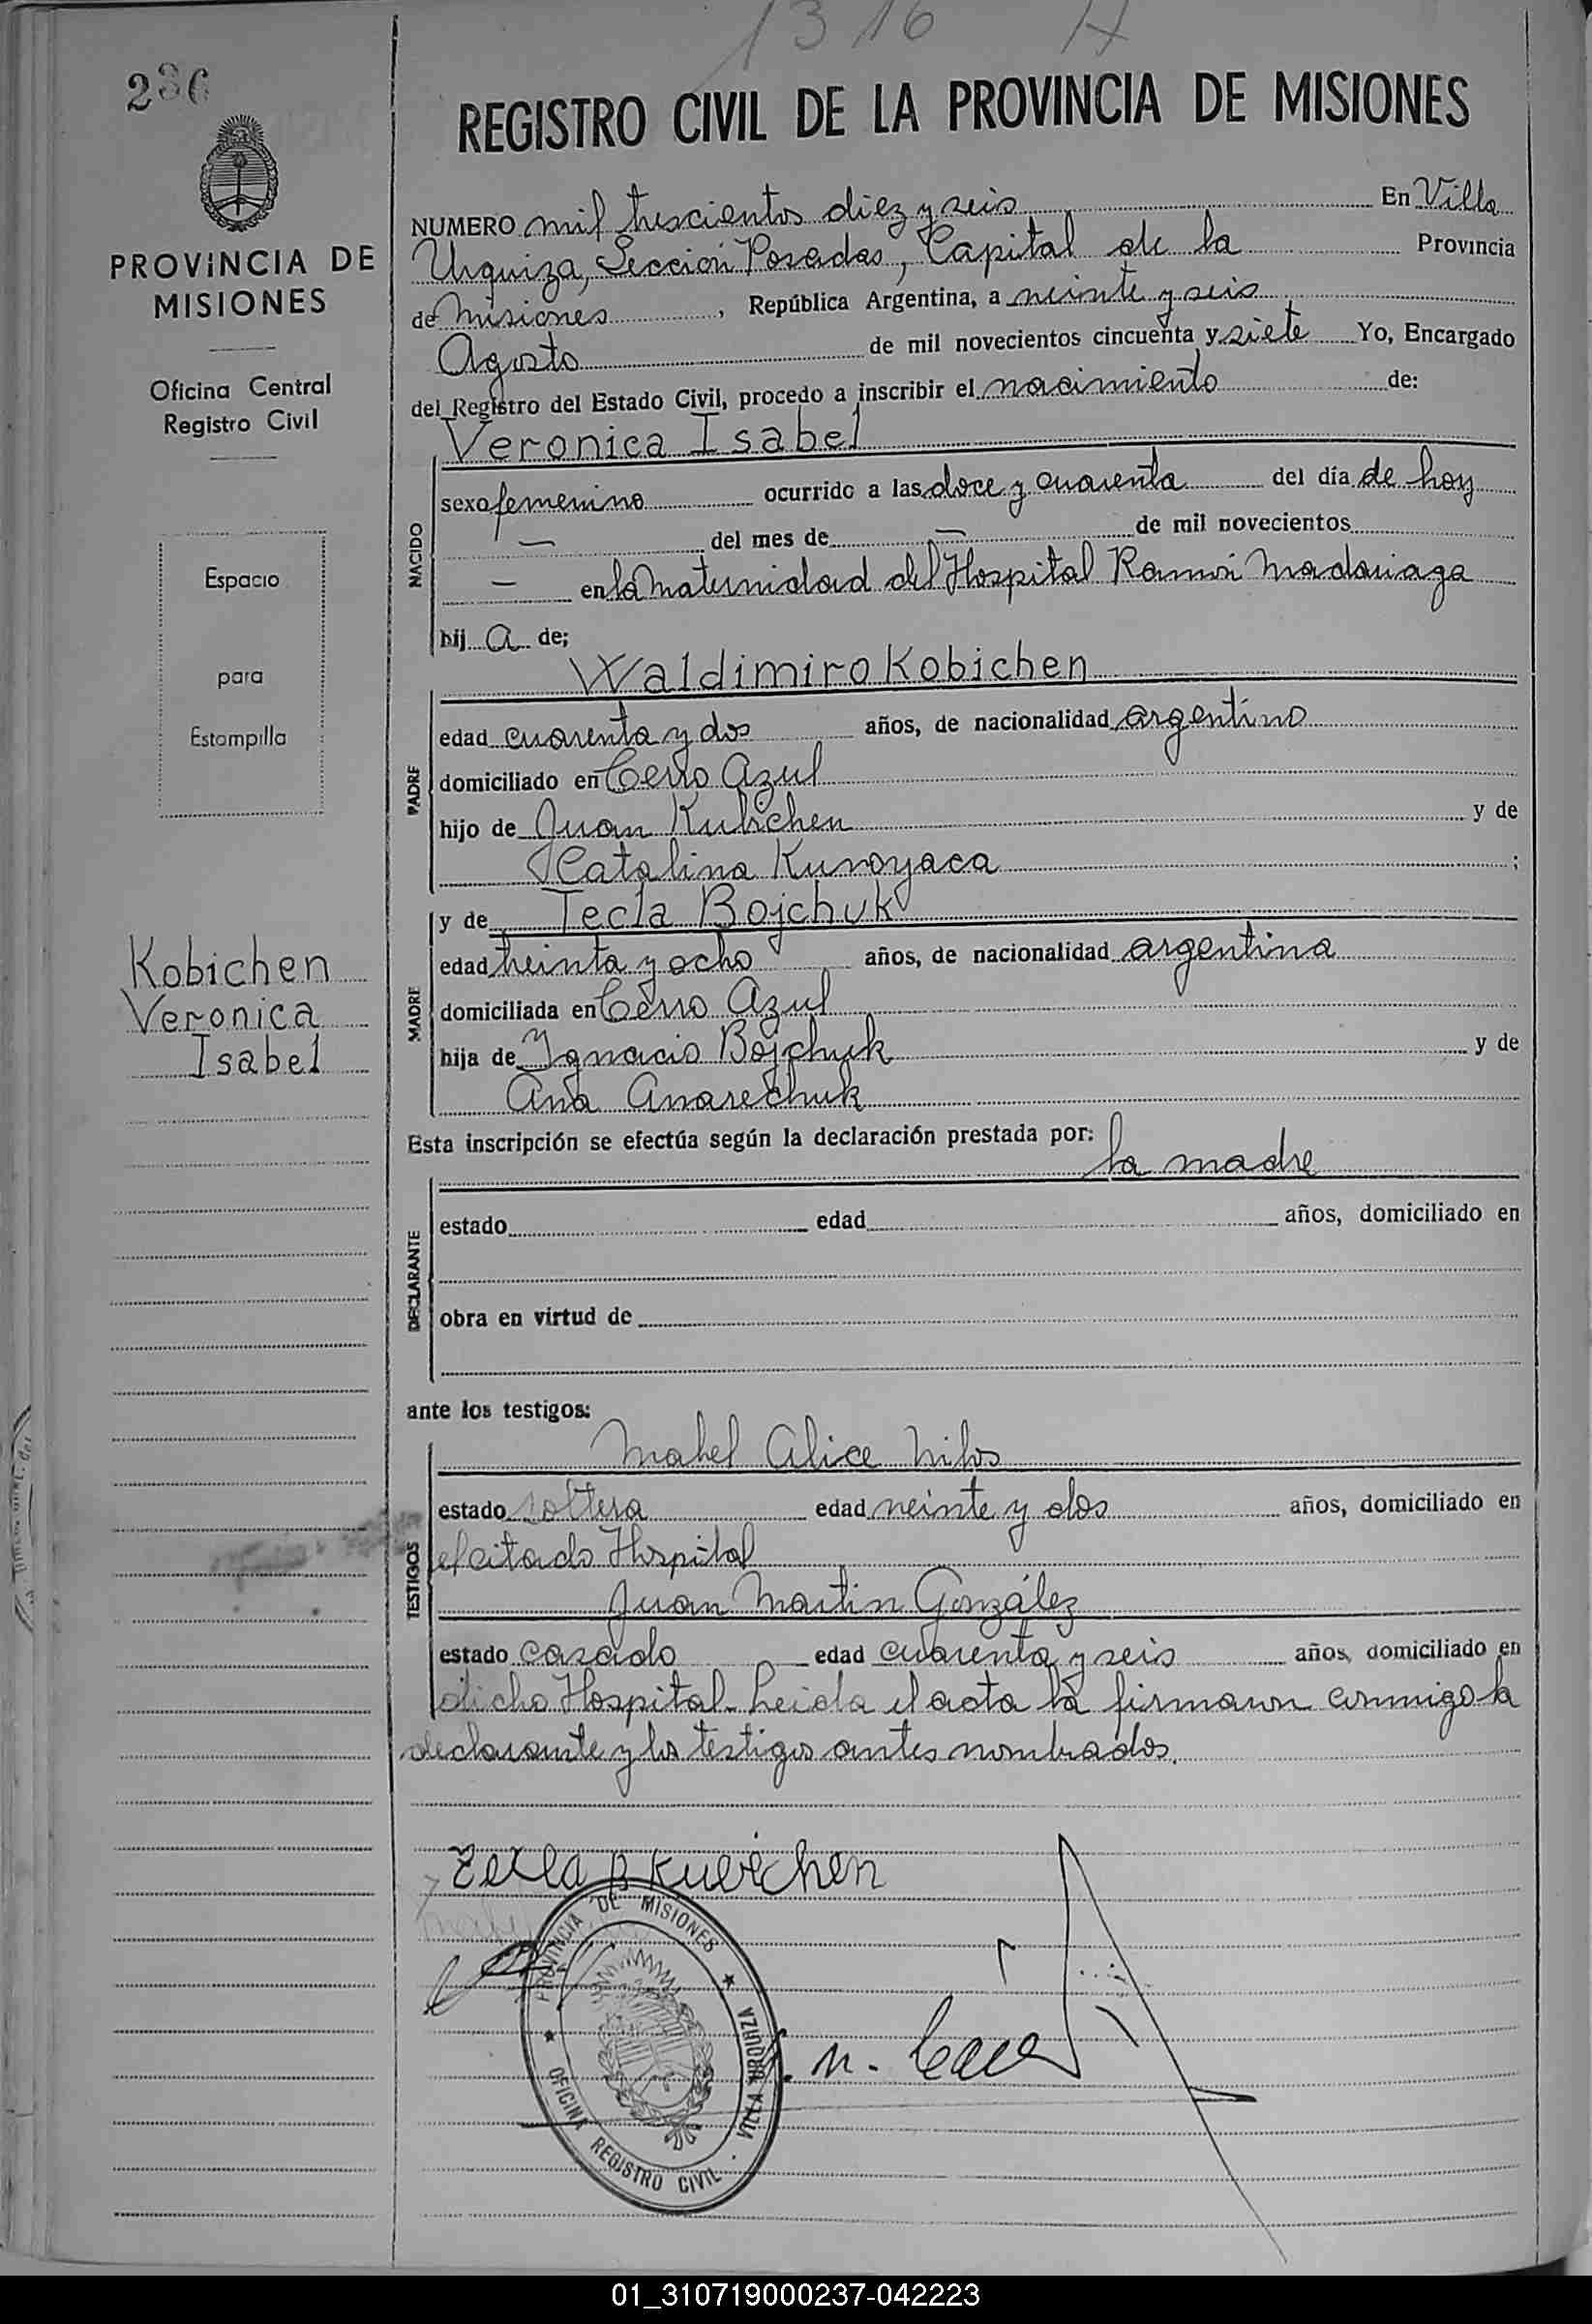 1316 A
236
REGISTRO CIVIL DE LA PROVINCIA DE MISIONES
PROVINCIA DE
MISIONES
Oficina Central
Registro Civil
Espacio
para
Estampilla
Kobichen
Veronica
Isabel
NUMERO mil trescientos diez y seis En Villa
Urquiza, Sección Posadas, Capital de la Provincia
de Misiones, República Argentina, a veinte y seis
Agosto de mil novecientos cincuenta y siete Yo, Encargado
del Registro del Estado Civil, procedo a inscribir el nacimiento de:
Veronica Isabel
NACIDO
sexo femenino ocurrido a las doce y cuarenta del día de hoy
— del mes de — de mil novecientos
— en la Maternidad del Hospital Ramón Madariaga
hij a de;
Waldimiro Kobichen
PADRE
edad cuarenta y dos años, de nacionalidad argentino
domiciliado en Cerro Azul
hijo de Juan Kubichen y de
Catalina Kunoyaca ;
y de Tecla Bojchuk
MADRE
edad treinta y ocho años, de nacionalidad argentina
domiciliada en Cerro Azul
hija de Ygnacio Bojchuk y de
Ana Anarechuk
Esta inscripción se efectúa según la declaración prestada por:
la madre
DECLARANTE
estado edad años, domiciliado en
obra en virtud de
ante los testigos:
Mabel Alice
TESTIGOS
estado soltera edad veinte y dos años, domiciliado en
el citado Hospital
Juan Martin González
estado casado edad cuarenta y seis años, domiciliado en
dicho Hospital. Leida el acta la firmaron conmigo la
declarante y los testigos antes nombrados.
Tecla B Kuvichen
PROVINCIA DE MISIONES
VILLA URQUIZA
OFICINA REGISTRO CIVIL
01_310719000237-042223